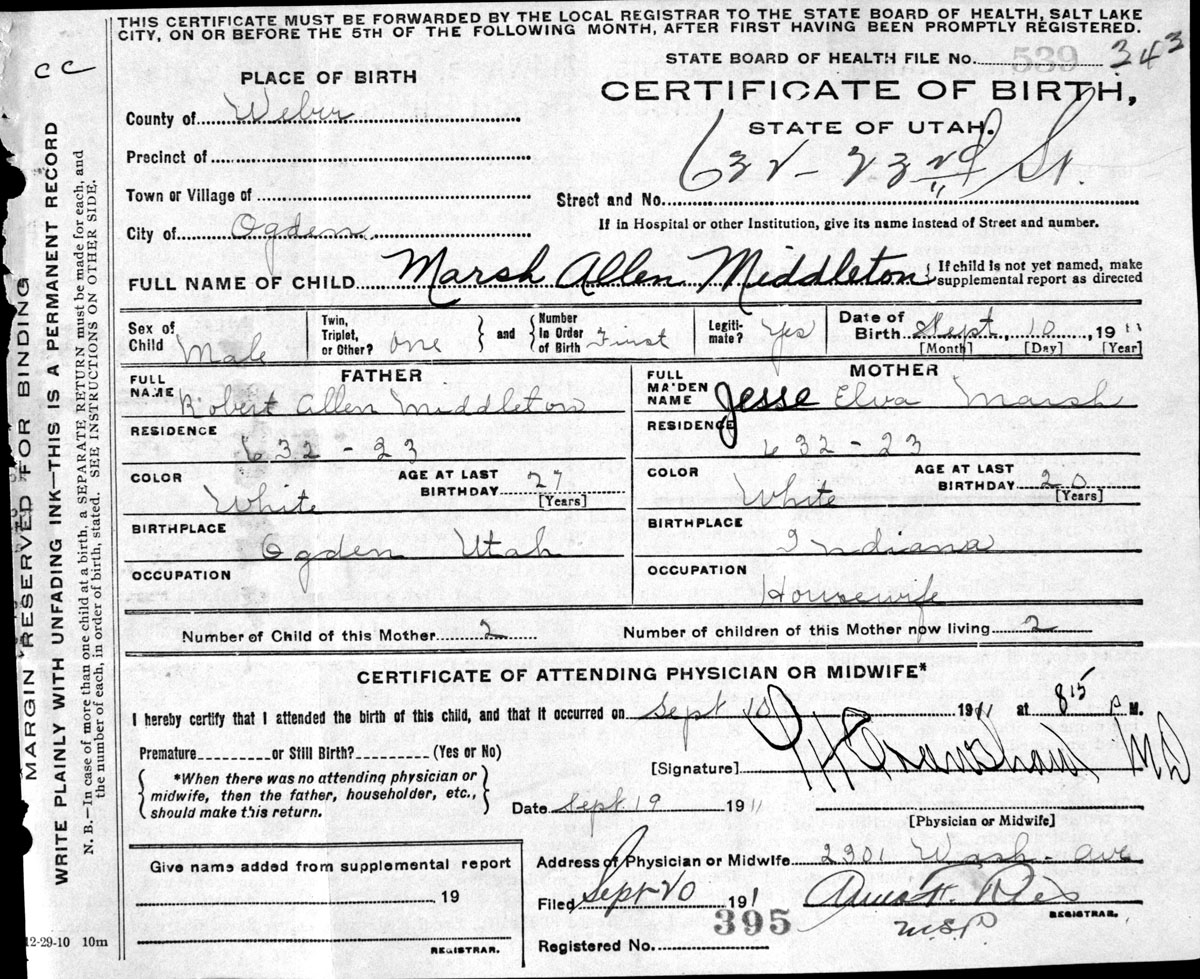 THIS CERTIFICATE MUST BE FORWARDED BY THE LOCAL REGISTRAR TO THE STATE BOARD OF HEALTH, SALT LAKE
CITY, ON OR BEFORE THE 5TH OF THE FOLLOWING MONTH, AFTER FIRST HAVING BEEN PROMPTLY REGISTERED.
CC
STATE BOARD OF HEALTH FILE No. 539 343
PLACE OF BIRTH
CERTIFICATE OF BIRTH,
STATE OF UTAH.
County of Weber
Precinct of
Town or Village of
Street and No. 632 - 23rd St.
City of Ogden
If in Hospital or other Institution, give its name instead of Street and number.
FULL NAME OF CHILD Marsh Allen Middleton
If child is not yet named, make
supplemental report as directed
Sex of Child Male
Twin, Triplet, or Other? One
and
Number In Order of Birth First
Legiti-mate? Yes
Date of Birth Sept 10, 1911
[Month] [Day] [Year]
FATHER
FULL NAME Robert Allen Middleton
RESIDENCE 632 - 23
COLOR White
AGE AT LAST BIRTHDAY 27
[Years]
BIRTHPLACE Ogden Utah
OCCUPATION
MOTHER
FULL MAIDEN NAME Jesse Elva Marsh
RESIDENCE 632 - 23
COLOR White
AGE AT LAST BIRTHDAY 20
[Years]
BIRTHPLACE Indiana
OCCUPATION Housewife
Number of Child of this Mother 2
Number of children of this Mother now living 2
CERTIFICATE OF ATTENDING PHYSICIAN OR MIDWIFE*
I hereby certify that I attended the birth of this child, and that it occurred on Sept 10 1911 at 8 15 P.M.
Premature or Still Birth? (Yes or No)
*When there was no attending physician or
midwife, then the father, householder, etc.,
should make this return.
[Signature] MD
Date Sept 19 1911
[Physician or Midwife]
Give name added from supplemental report
, 19
REGISTRAR.
Address of Physician or Midwife 2301 Wash. Ave
Filed Sept 20 1911
REGISTRAR.
Registered No. 395
12-29-10 10m
MARGIN RESERVED FOR BINDING
WRITE PLAINLY WITH UNFADING INK—THIS IS A PERMANENT RECORD
N. B.—In case of more than one child at a birth, a SEPARATE RETURN must be made for each, and
the number of each, in order of birth, stated. SEE INSTRUCTIONS ON OTHER SIDE.